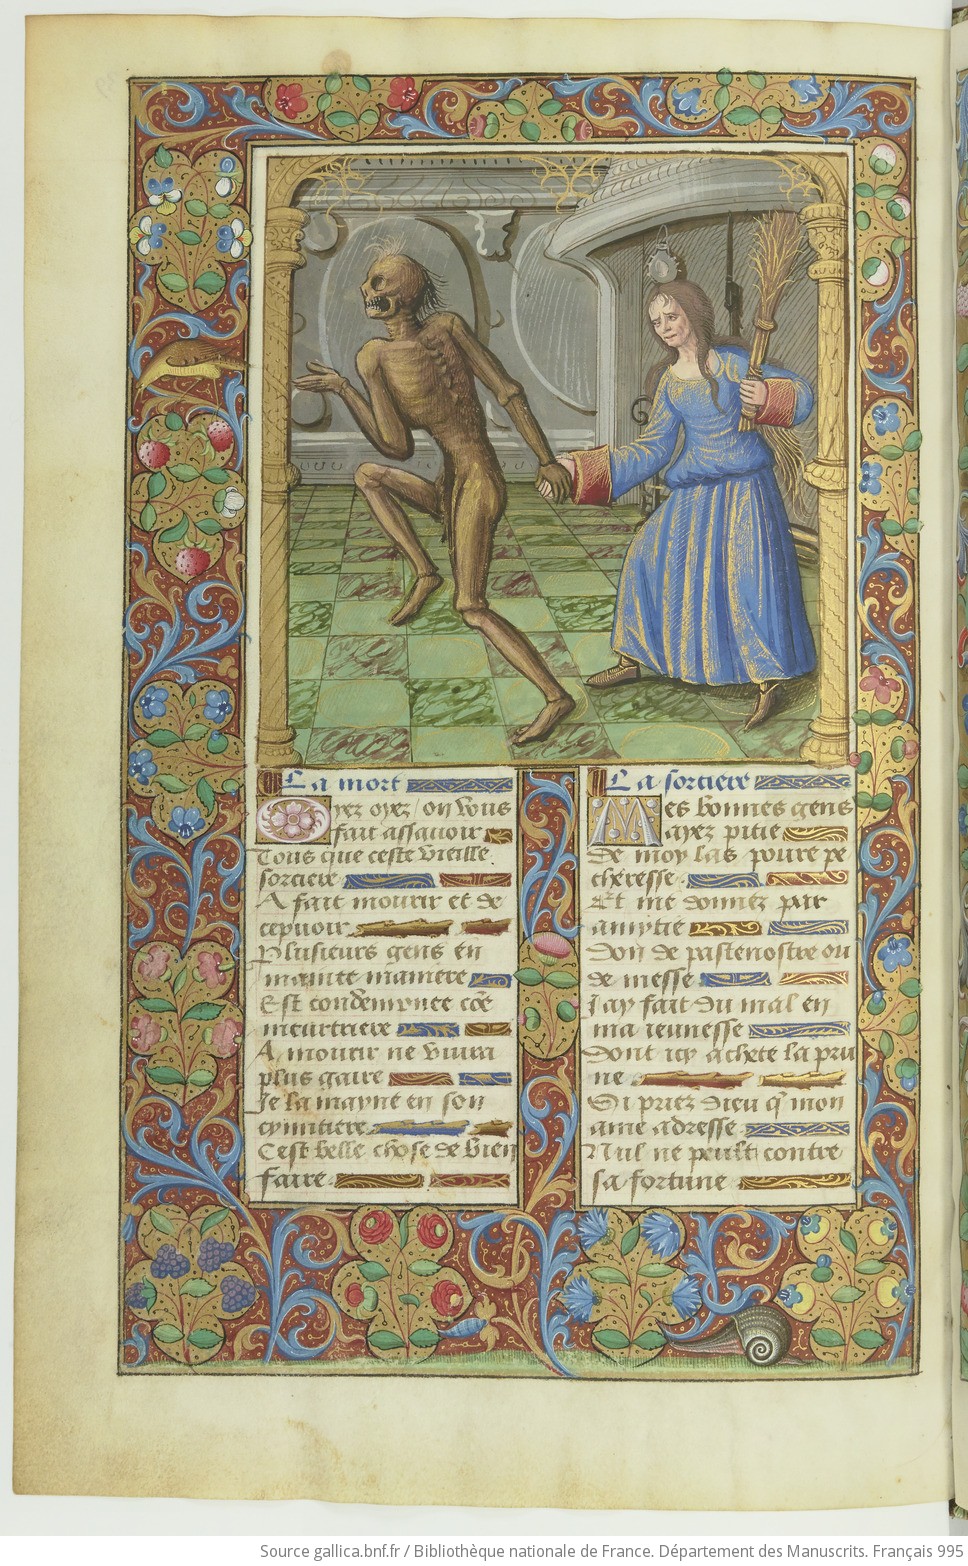 La mort
Oyez oyez / on vous
fait assavoir
Tous que ceste vieille
sorciere
A fait mourir et de
cepuoir
Plusieurs gens en
mainte maniere
Est condempnee cõe
meurtriere
A mourir ne vivra
plus gaire
Je la mayne en son
cymitiere
Cest belle chose de bien
faire
La sorciere
Mes bonnes gens
ayez pitie
De moy las poure pe
cheresse
Et me donnez par
amytie
Don de patenostre ou
de messe
Jay fait du mal en
ma ieunesse
Dont icy achete la pru
ne
Si priez dieu q̃ mon
ame adresse
Nul ne peult contre
sa fortune
Source gallica.bnf.fr / Bibliothèque nationale de France. Département des Manuscrits. Français 995